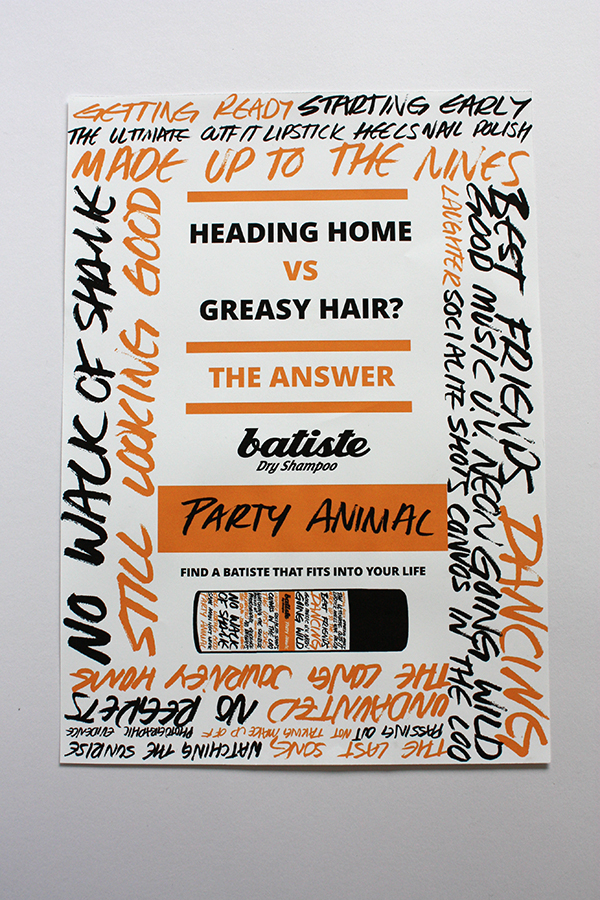 GETTING READY STARTING EARLY
THE ULTIMATE OUTFIT LIPSTICK HEELS NAIL POLISH
MADE UP TO THE NINES
BEST FRIENDS DANCING
GOOD MUSIC U.V. NEON GOING WILD
LAUGHTER SOCIALITE SHOTS CONVOS IN THE LOO
THE LAST SONG WATCHING THE SUNRISE
PASSING OUT NOT TAKING MAKE UP OFF PHOTOGRAPHIC EVIDENCE
UNDAUNTED NO REGRETS
THE LONG JOURNEY HOME
NO WALK OF SHAME
STILL LOOKING GOOD
HEADING HOME
VS
GREASY HAIR?
THE ANSWER
batiste
Dry Shampoo
PARTY ANIMAL
FIND A BATISTE THAT FITS INTO YOUR LIFE
NO WALK
OF SHAME
batiste
BEST FRIENDS
DANCING
GOING WILD